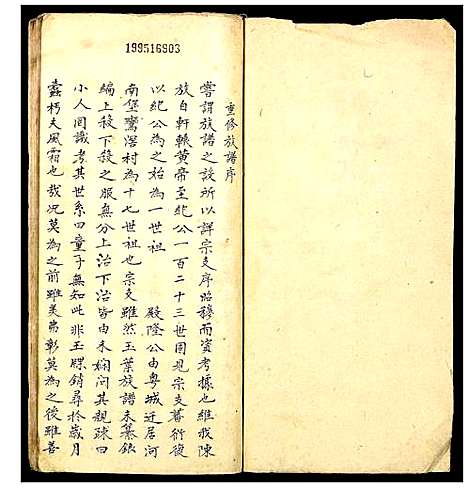 199516903
重修族譜序
嘗謂族譜之設所以詳宗支序昭穆而資考據也維我陳
族自軒轅黃帝至紀公一百二十三世固見宗支蕃衍復
以紀公為之始為一世祖 殿隆公由粵城迁居河
南堡鷟滘村為十七世祖也宗支雖然玉葉族譜未纂錄
編上移下移之服無分上治下治皆由未嫻問其親疎曰
小人罔識考其世系四童子無知此非玉牒銷尋於歲月
蠹朽夫風霜也哉况莫為之前雖美弗彰莫為之後雖善